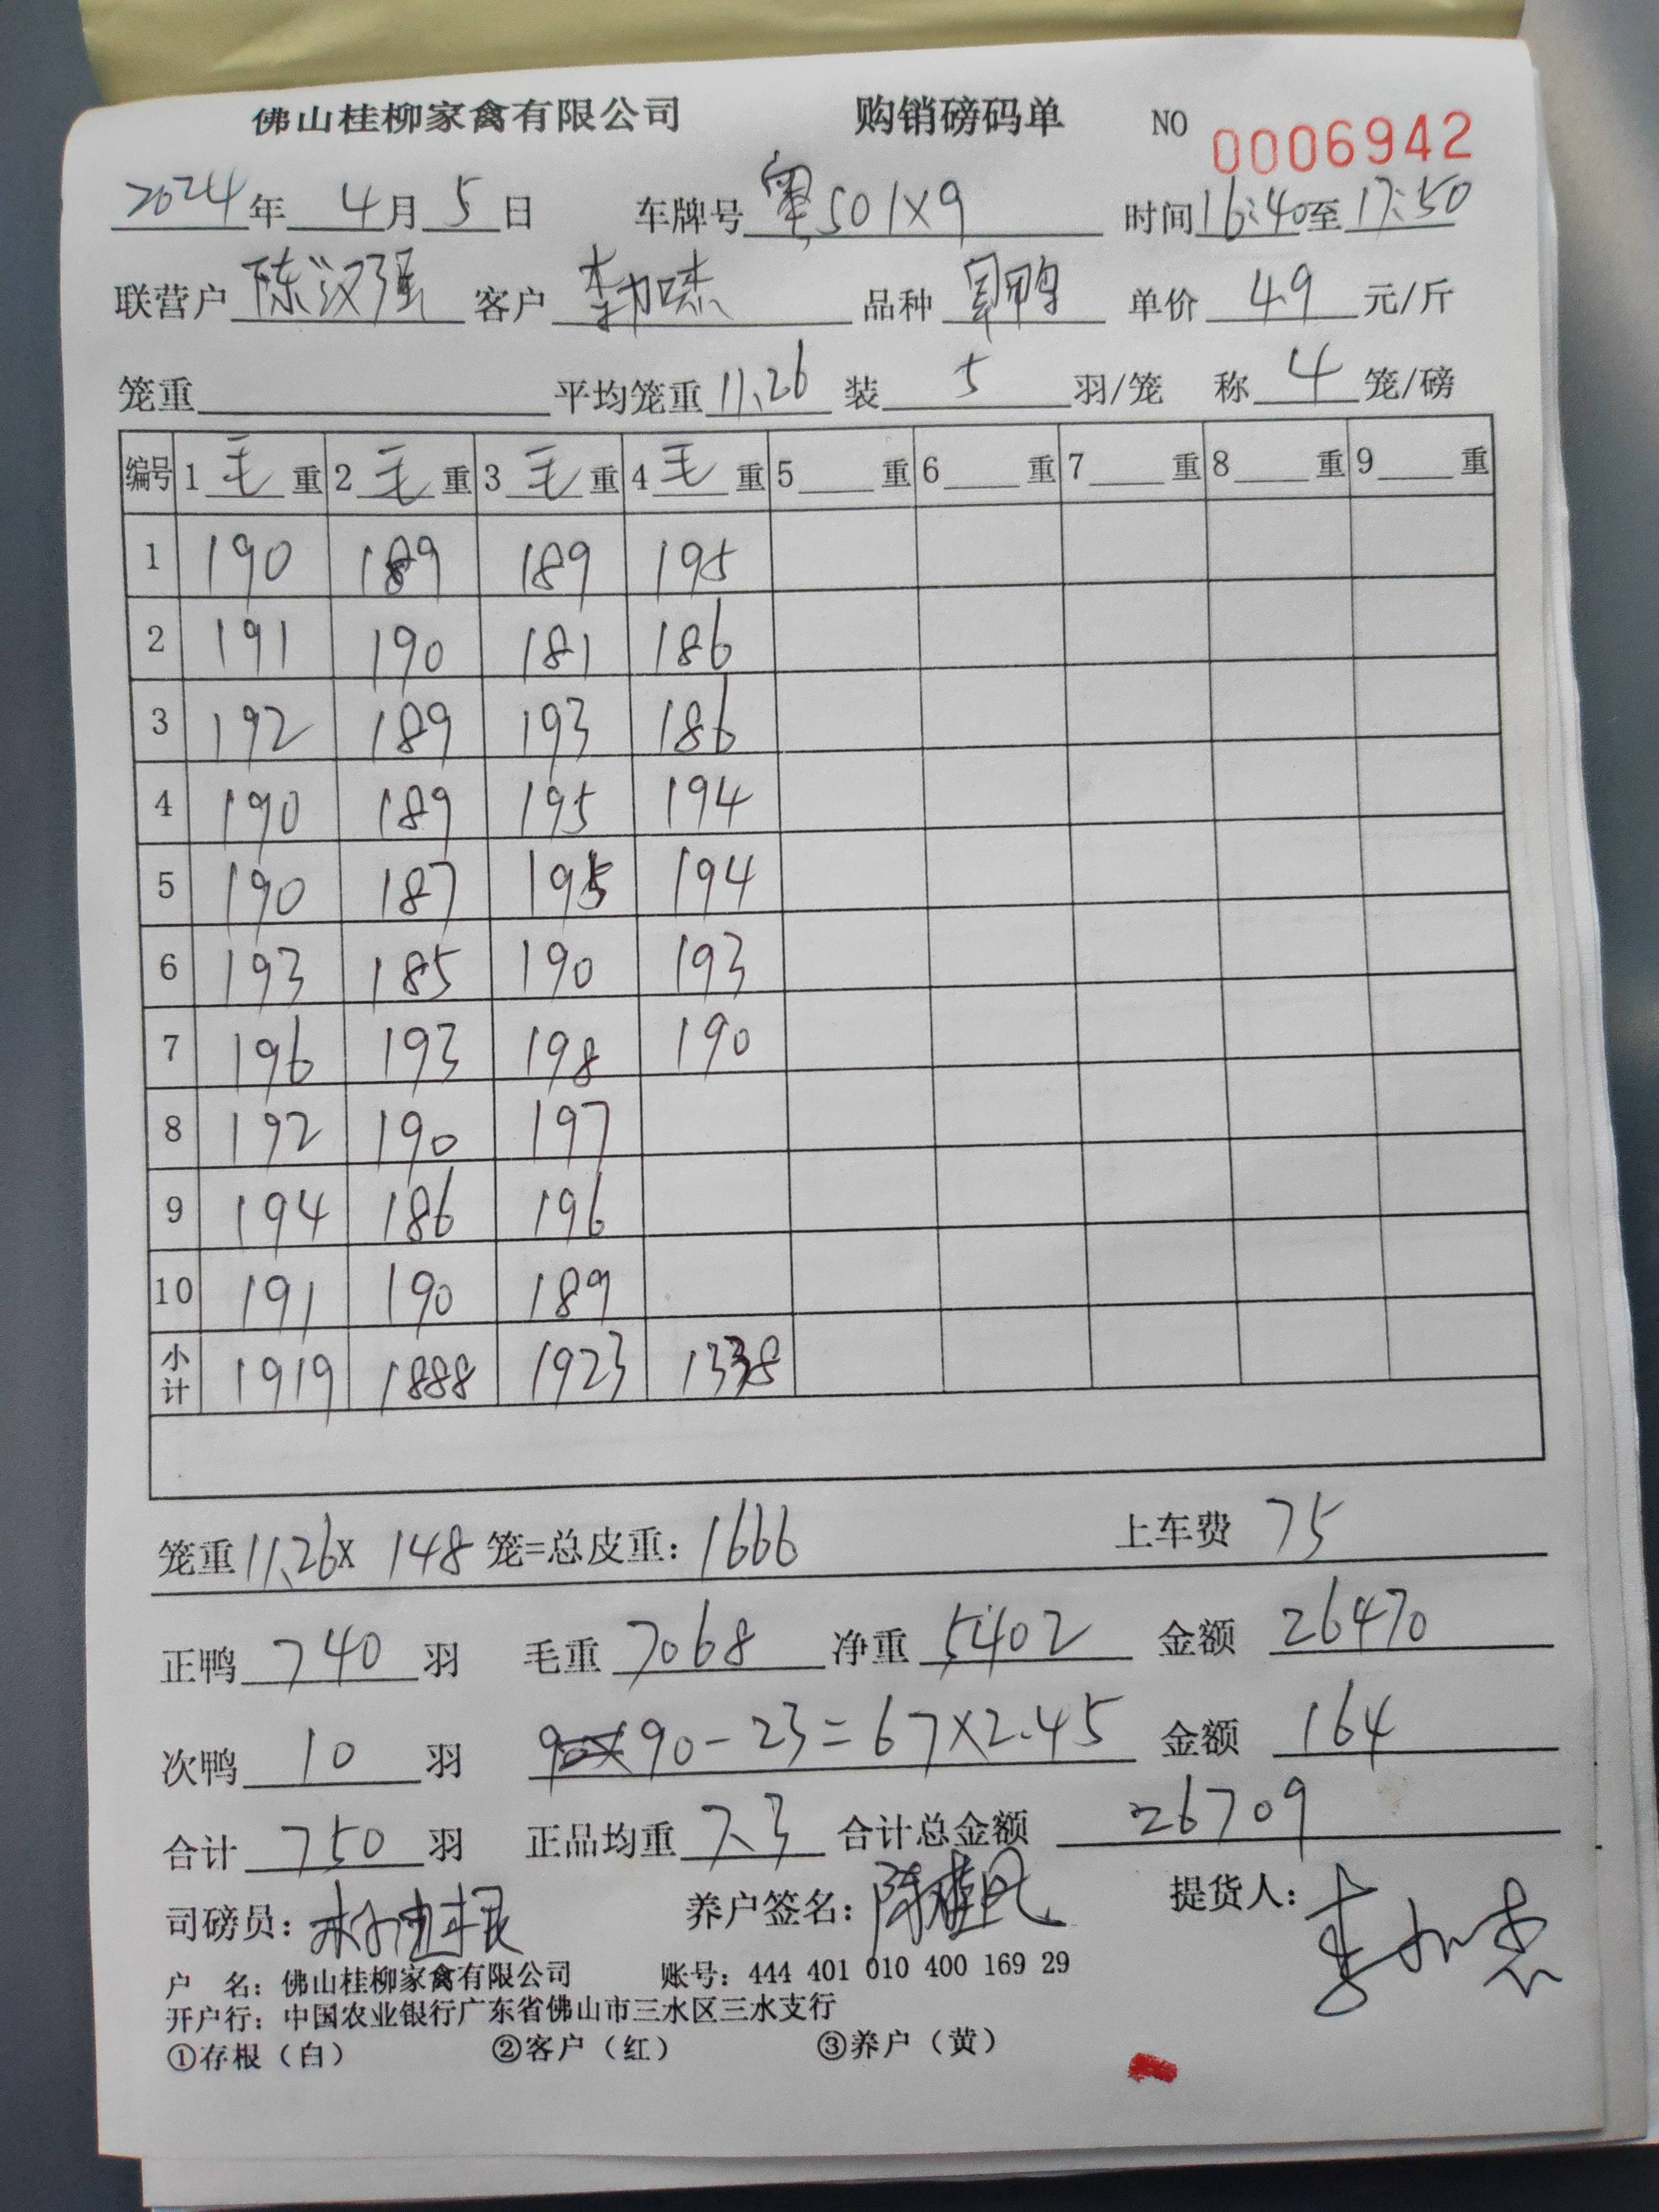 佛山桂柳家禽有限公司 购销磅码单 NO 0006942
2024年 4月 5日 车牌号 粤S01X9 时间 16:40至17:50
联营户 陈汉强 客户 李加杰 品种 鸭 单价 4.9 元/斤
笼重 平均笼重 11.26 装 5 羽/笼 称 4 笼/磅
编号 1 毛 重 2 毛 重 3 毛 重 4 毛 重 5 重 6 重 7 重 8 重 9 重
1 190 189 189 195
2 191 190 181 186
3 192 189 193 186
4 190 189 195 194
5 190 187 195 194
6 193 185 190 193
7 196 193 198 190
8 192 190 197
9 194 186 196
10 191 190 189
小计 1919 1888 1923 1338
笼重 11.26 X 148 笼=总皮重: 1666 上车费 75
正鸭 740 羽 毛重 7068 净重 5402 金额 26470
次鸭 10 羽 90-23=67×2.45 金额 164
合计 750 羽 正品均重 7.3 合计总金额 26709
司磅员: 养户签名: 提货人:
户 名: 佛山桂柳家禽有限公司 账号: 444 401 010 400 169 29
开户行: 中国农业银行广东省佛山市三水区三水支行
①存根(白) ②客户(红) ③养户(黄)